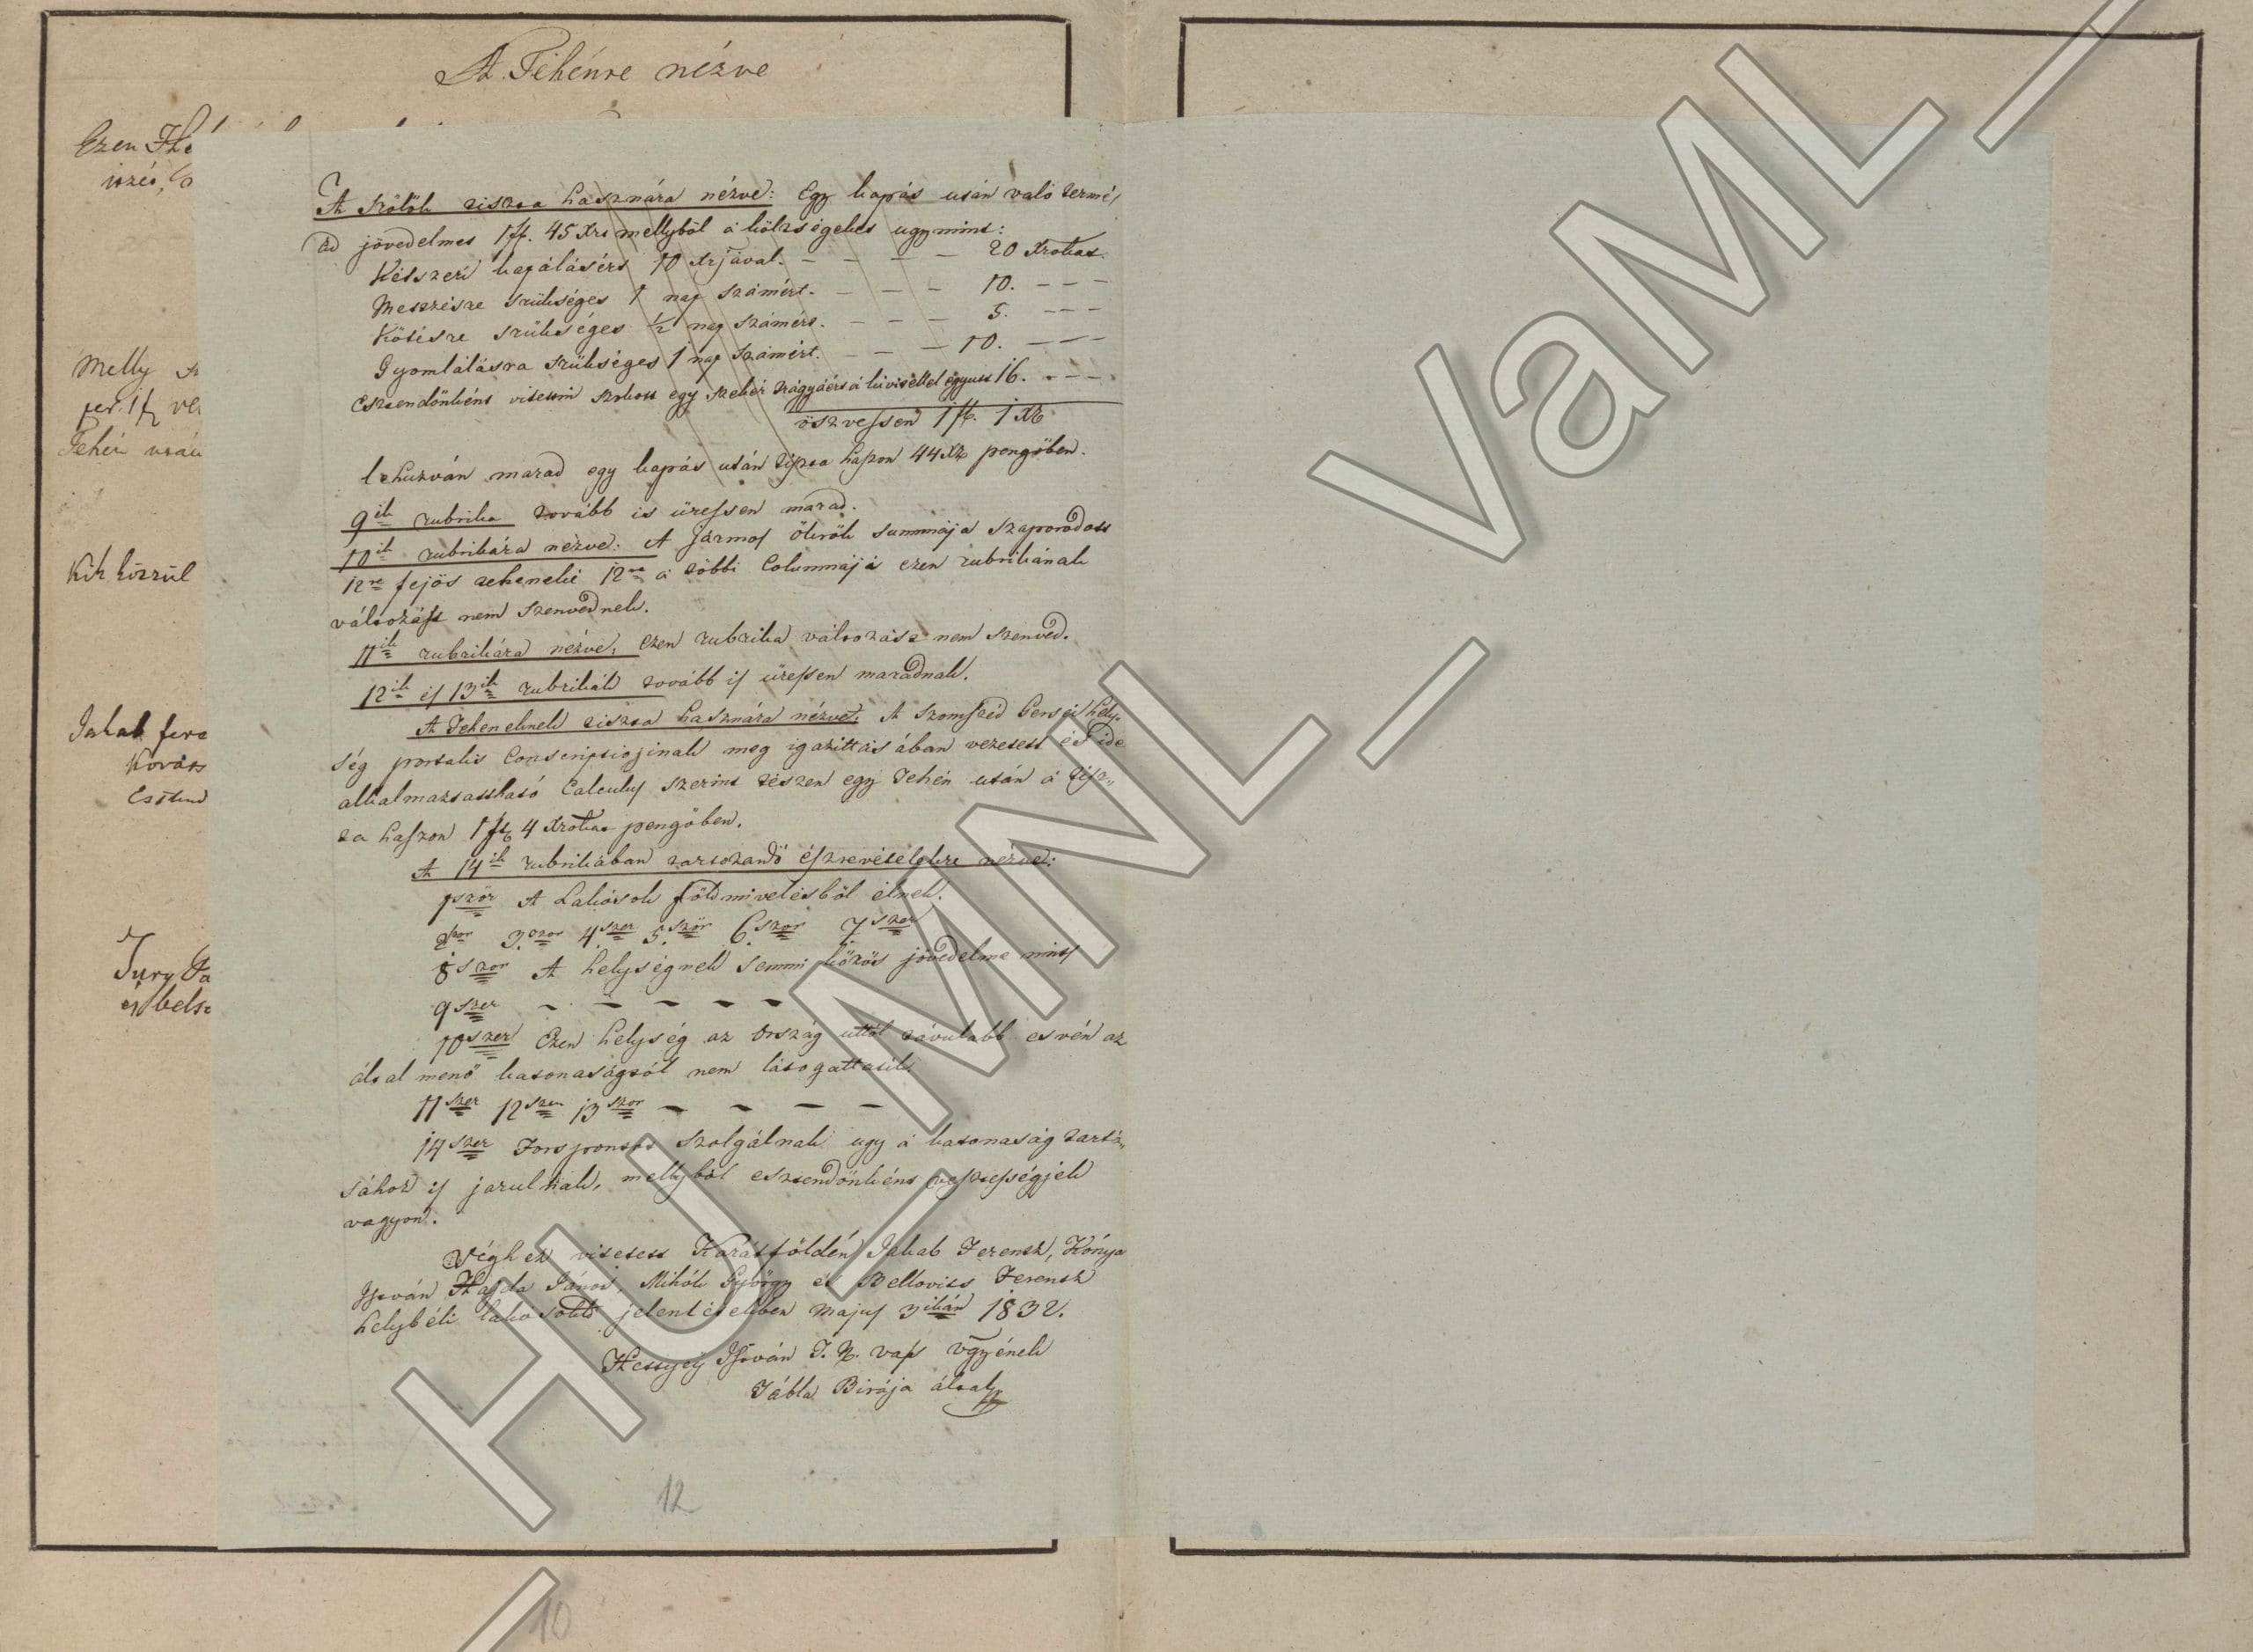 A Tehénre nézve
Ezen
iszés,
Melly
per. 1 f
Fehér
Kik közzül
Jakab fere
Kováts
Esztend
Jury
és belső
A Szölök tiszta hasznára nézve: Egy kapás után való termé,
jövedelmes 1 ft. 45 Xrs mellyböl a költségeket ugymint:
Kétszeri kapálásért 10 Xrjával. — — — — 20 Xrokat.
Metszésre szükséges 1 nap számért. — — — 10. — — —
Kötésre szükséges 1/2 nap számért. — — — 5. — — —
Gyomlálásra szükséges 1 nap számért. — — — 10. — — —
Esztendönként vitetni szokott egy szekér trágyáért a kivitellel egyutt 16. — — —
öszvessen 1 ft. 1 Xr
lehuzván marad egy kapás után tiszta haszon 44 Xr pengöben.
9ik rubrika tovább is üressen marad.
10ik rubrikára nézve: A Jármos Ökrök summája szaporodott
12re fejös teheneké 12re a többi Columnáji ezen rubrikának
változást nem szenvednek.
11ik rubrikára nézve: ezen rubrika változást nem szenved.
12ik és 13ik rubrikák tovább is üressen maradnak.
A Tehenekneк tiszta hasznára nézve: A szomszéd Gersei hely,
ség portalis Conscriptiojinak meg igazittásában vezetett és ide
alkalmaztasstható Calculus szerint tészen egy Tehén után a tisz,,
ta haszon 1 ft 4 Xrokat pengöben.
A 14ik rubrikában tartozandó észrevételekre nézve:
1ször A Lakósok földmivelésböl élnek.
2szor 3.szor 4.szer 5.ször 6.szor 7szer
8szor A helységnek semmi közös jövedelme nints
9szer — — — — —
10szer Ezen helység az Ország uttól távulabb esvén az
által menö katonaságtól nem látogattatik
11szer 12szer 13szor — — — —
14szer Forspontot szolgálnak ugy a katonaság tartá,,
sához is járulnak, mellyböl esztendönként vesztességjek
vagyon.
Véghez vitetett Karátföldén Jakab Ferentz, Kónya
István Hajda János, Mihók György és Bellovits Ferentz
helybéli lakósok jelenlétekben Majus 3ikán 1832.
Hettyey István T. N. vas Vgyének
Tábla Birája által
12
10
HU_MNL_VaML_